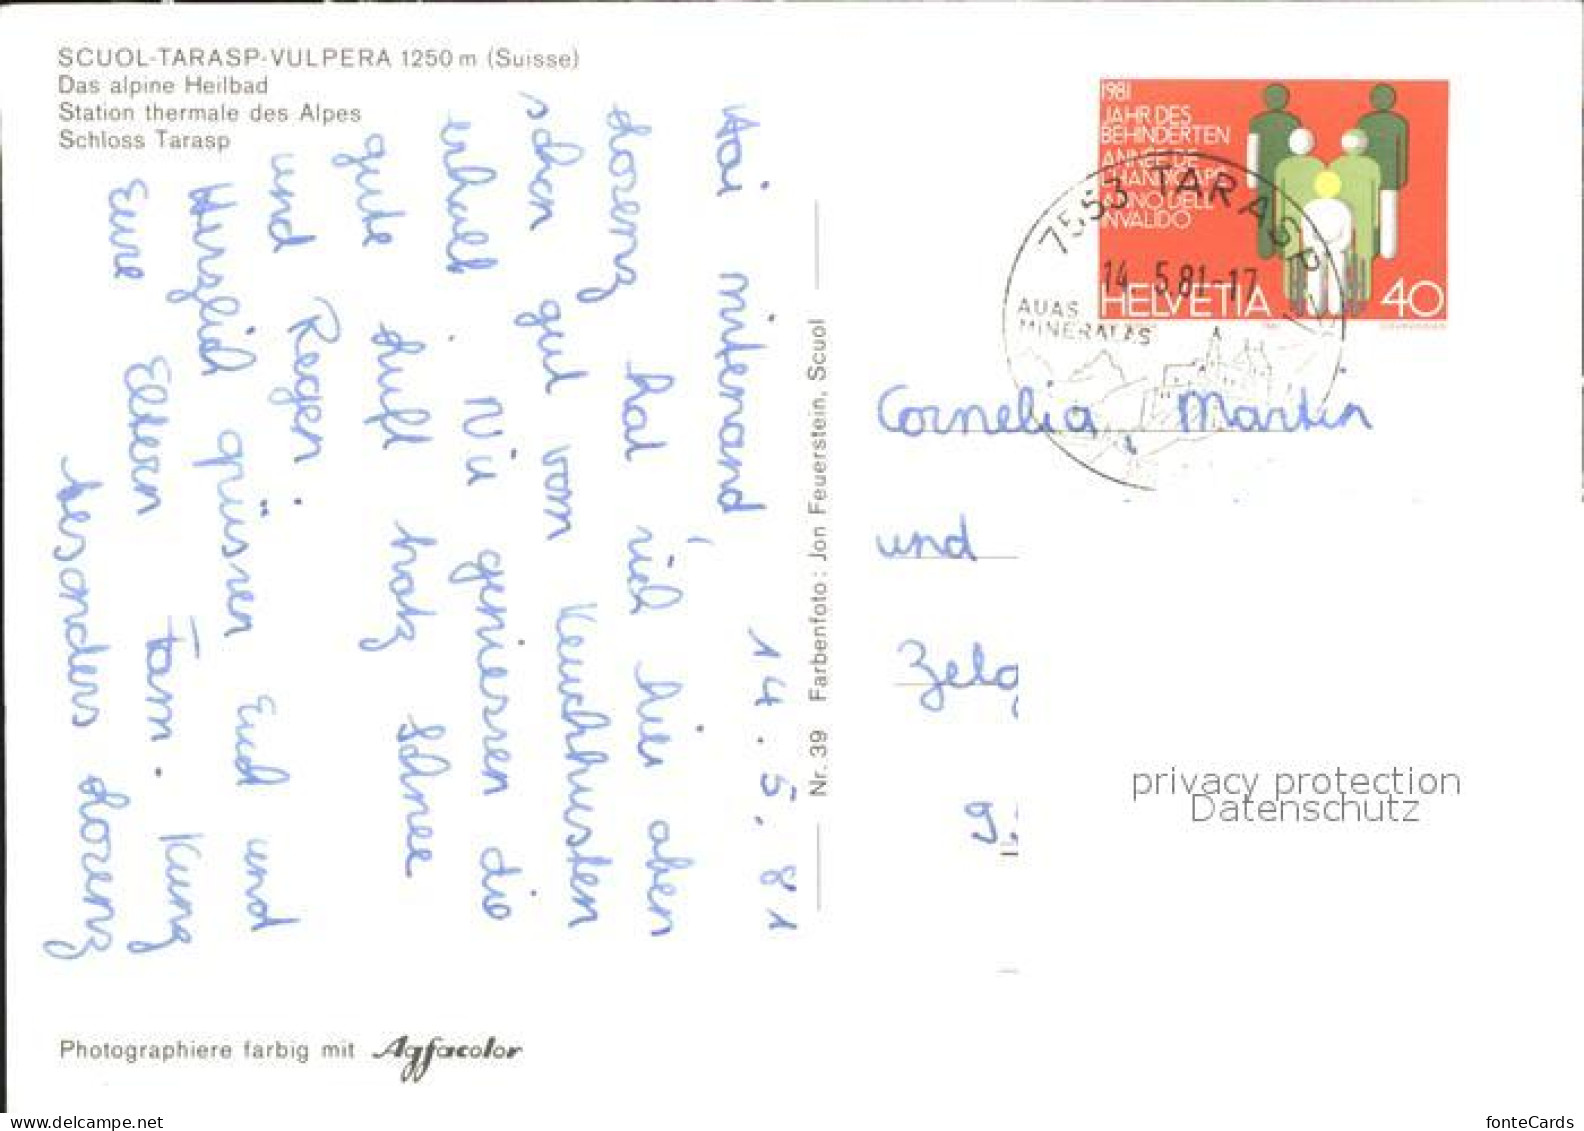 SCUOL-TARASP-VULPERA 1250 m (Suisse)
Das alpine Heilbad
Station thermale des Alpes
Schloss Tarasp
14.5.81
Hoi mitenand,
Lorenz hat sich hier oben
schon gut vom Keuchhusten
erholt. Wir geniessen die
gute Luft trotz Schnee
und Regen.
Herzlich grüssen Euch und
Eure Eltern Fam. Kunz
besonders Lorenz
Nr. 39 Farbenfoto: Jon Feuerstein, Scuol
1981
JAHR DES
BEHINDERTEN
ANNÉE DE
L'HANDICAPÉ
ANNO DELL'
INVALIDO
HELVETIA 40
7553 TARASP
14. 5.81-17
AUAS
MINERALAS
Cornelia Martin
und
Zelg
9
privacy protection
Datenschutz
Photographiere farbig mit Agfacolor
fonteCards